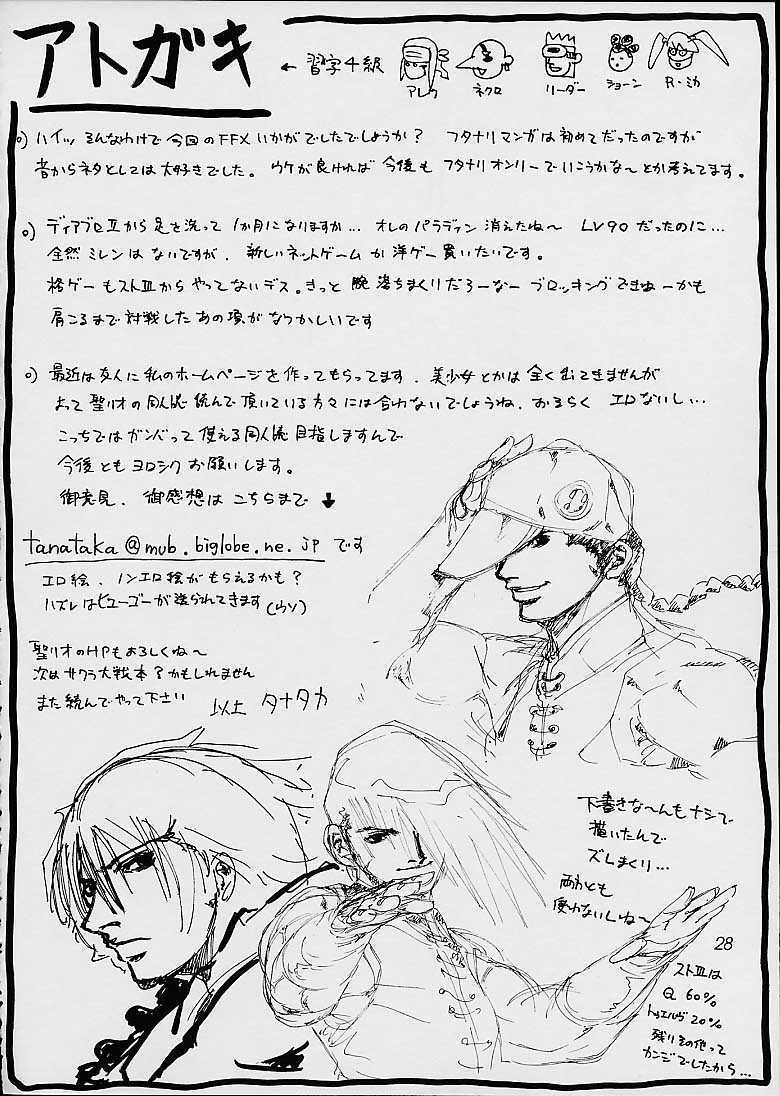 アトガキ
← 習字4級
アレク
ネクロ
リーダー
ショーン
R・ミカ
o) ハイッ そんなわけで今回のFFXいかがでしたでしょうか? フタナリマンガは初めてだったのですが
昔からネタとしては大好きでした。 ウケが良ければ 今後も フタナリオンリーでいこうかな〜とか考えてます。
o) ディアブロⅡから足を洗って 1か月になりますか… オレのパラディン 消えたね〜 LV90 だったのに…
全然ミレンはないですが、新しいネットゲームか洋ゲー買いたいです。
格ゲーもストⅢからやってないデス。きっと 腕落ちまくりだろーなー ブロッキングできねーかも
肩こるまで対戦したあの頃がなつかしいです
o) 最近は友人に私のホームページを作ってもらってます、美少女とかは全く出てきませんが
よって聖リオの同人誌読んで頂いている方々には合わないでしょうね、おそらく エロないし…
こっちではガンバって使える同人誌目指しますんで
今後ともヨロシクお願いします。
御意見、御感想はこちらまで ↓
tanataka@mub.biglobe.ne.jp です
エロ絵、ノンエロ絵がもらえるかも?
ハズレはヒューゴーが送られてきます(ウソ)
聖リオのHPもよろしくね〜
次はサクラ大戦本?かもしれません
また読んでやって下さい
以上 タナタカ
下書きな〜んもナシで
描いたんで
ズレまくり…
両わとも
使わないしね〜
28
ストⅢは
Q 60%
トゥエルヴ 20%
残りその他って
カンジでしたから…